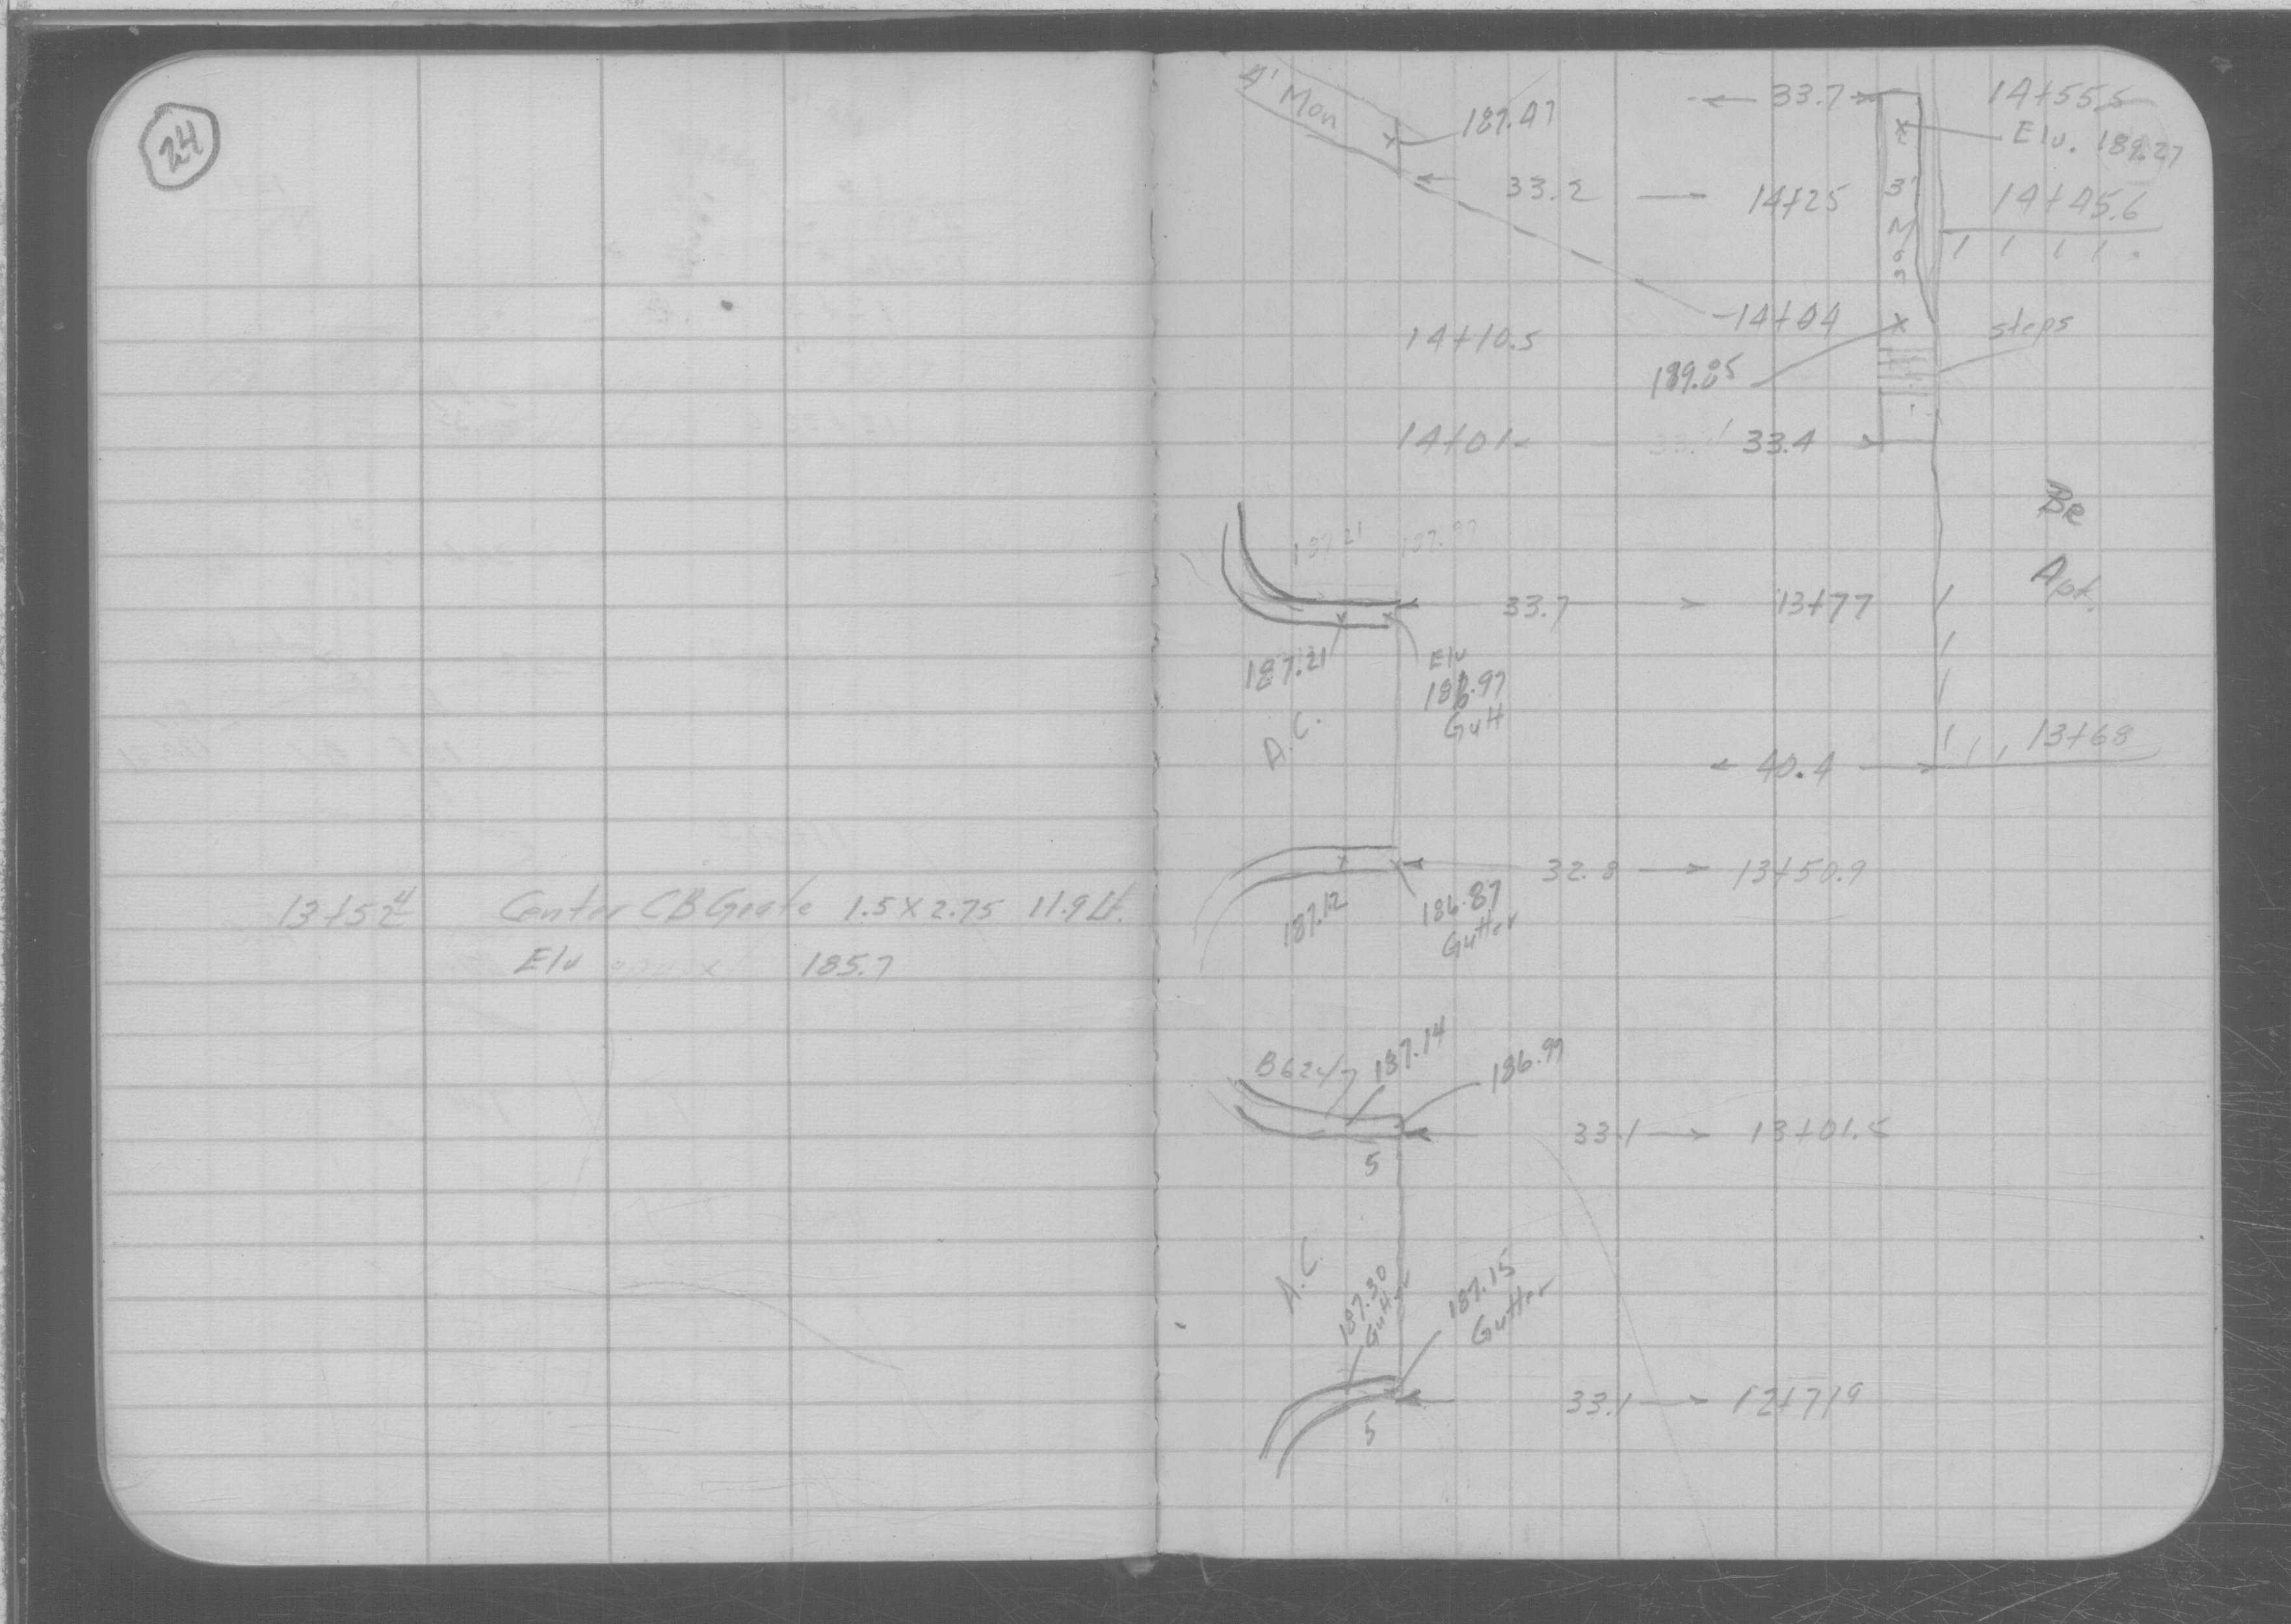 24
13+52 4 Center CB Grate 1.5 x 2.75 11.9 Lt.
Elv approx 185.7
4' Mon
187.47
33.7 14+55.5
Elv. 189.27
33.2 14+25 3' Mon 14+45.6
14+04
14+10.5 steps
189.85
14+01 33.4
Br
Apt.
187.21
33.7 13+77
187.21 Elv
186.97
Gutt
A.C.
13+68
40.4
32.8 13+50.9
187.12 186.87
Gutter
B624/7 187.14 186.99
33.1 13+01.5
5
A.C.
187.30
Gutter
187.15
Gutter
33.1 12+71.9
5